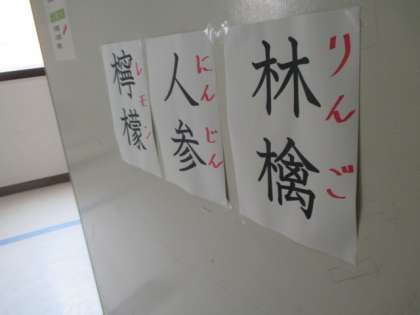 林檎
りんご
人参
にんじん
檸檬
レモン